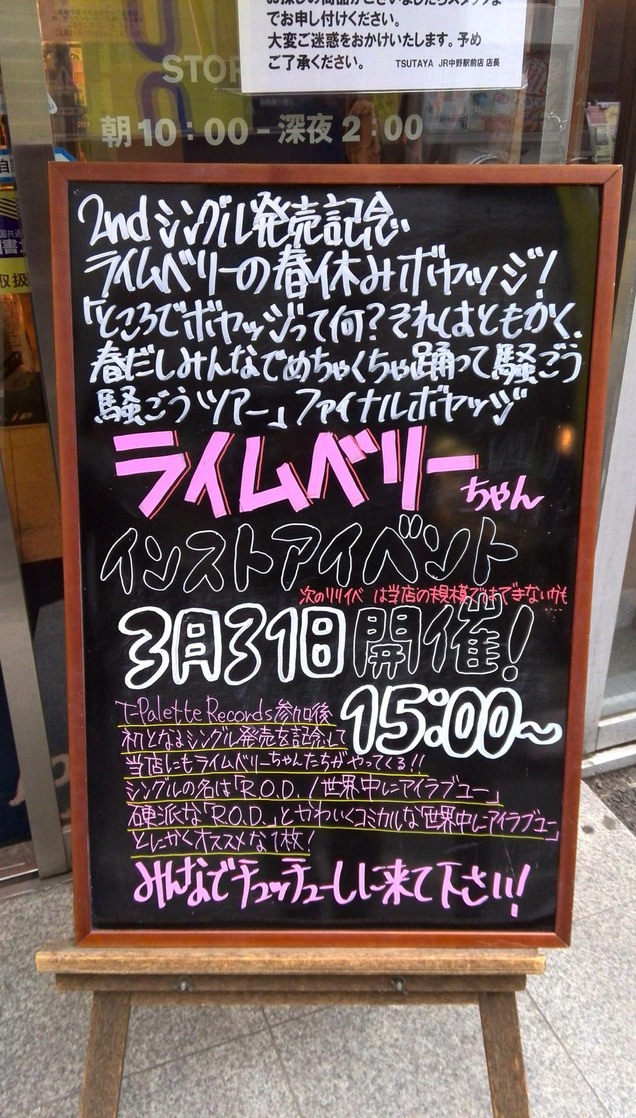 でお申し付けください。
大変ご迷惑をおかけいたします。予め
ご了承ください。 TSUTAYA JR中野駅前店 店長
STOR
朝10:00-深夜2:00
2ndシングル発売記念
ライムベリーの春休みボヤッジ!
「ところでボヤッジって何?それはともかく、
春だしみんなでめちゃくちゃ踊って騒ごう
騒ごうツアー」ファイナルボヤッジ
ライムベリーちゃん
インストアイベント
次のリリイベ は当店の規模ではできないかも
3月31日開催!
15:00~
T-Palette Records参加後
初となるシングル発売を記念して
当店にもライムベリーちゃんたちがやってくる!!
シングルの名は「R.O.D. / 世界中にアイラブユー」
硬派な「R.O.D.」とかわいくコミカルな「世界中にアイラブユー」
とにかくオススメな1枚!
みんなでチュッチューしに来て下さい!